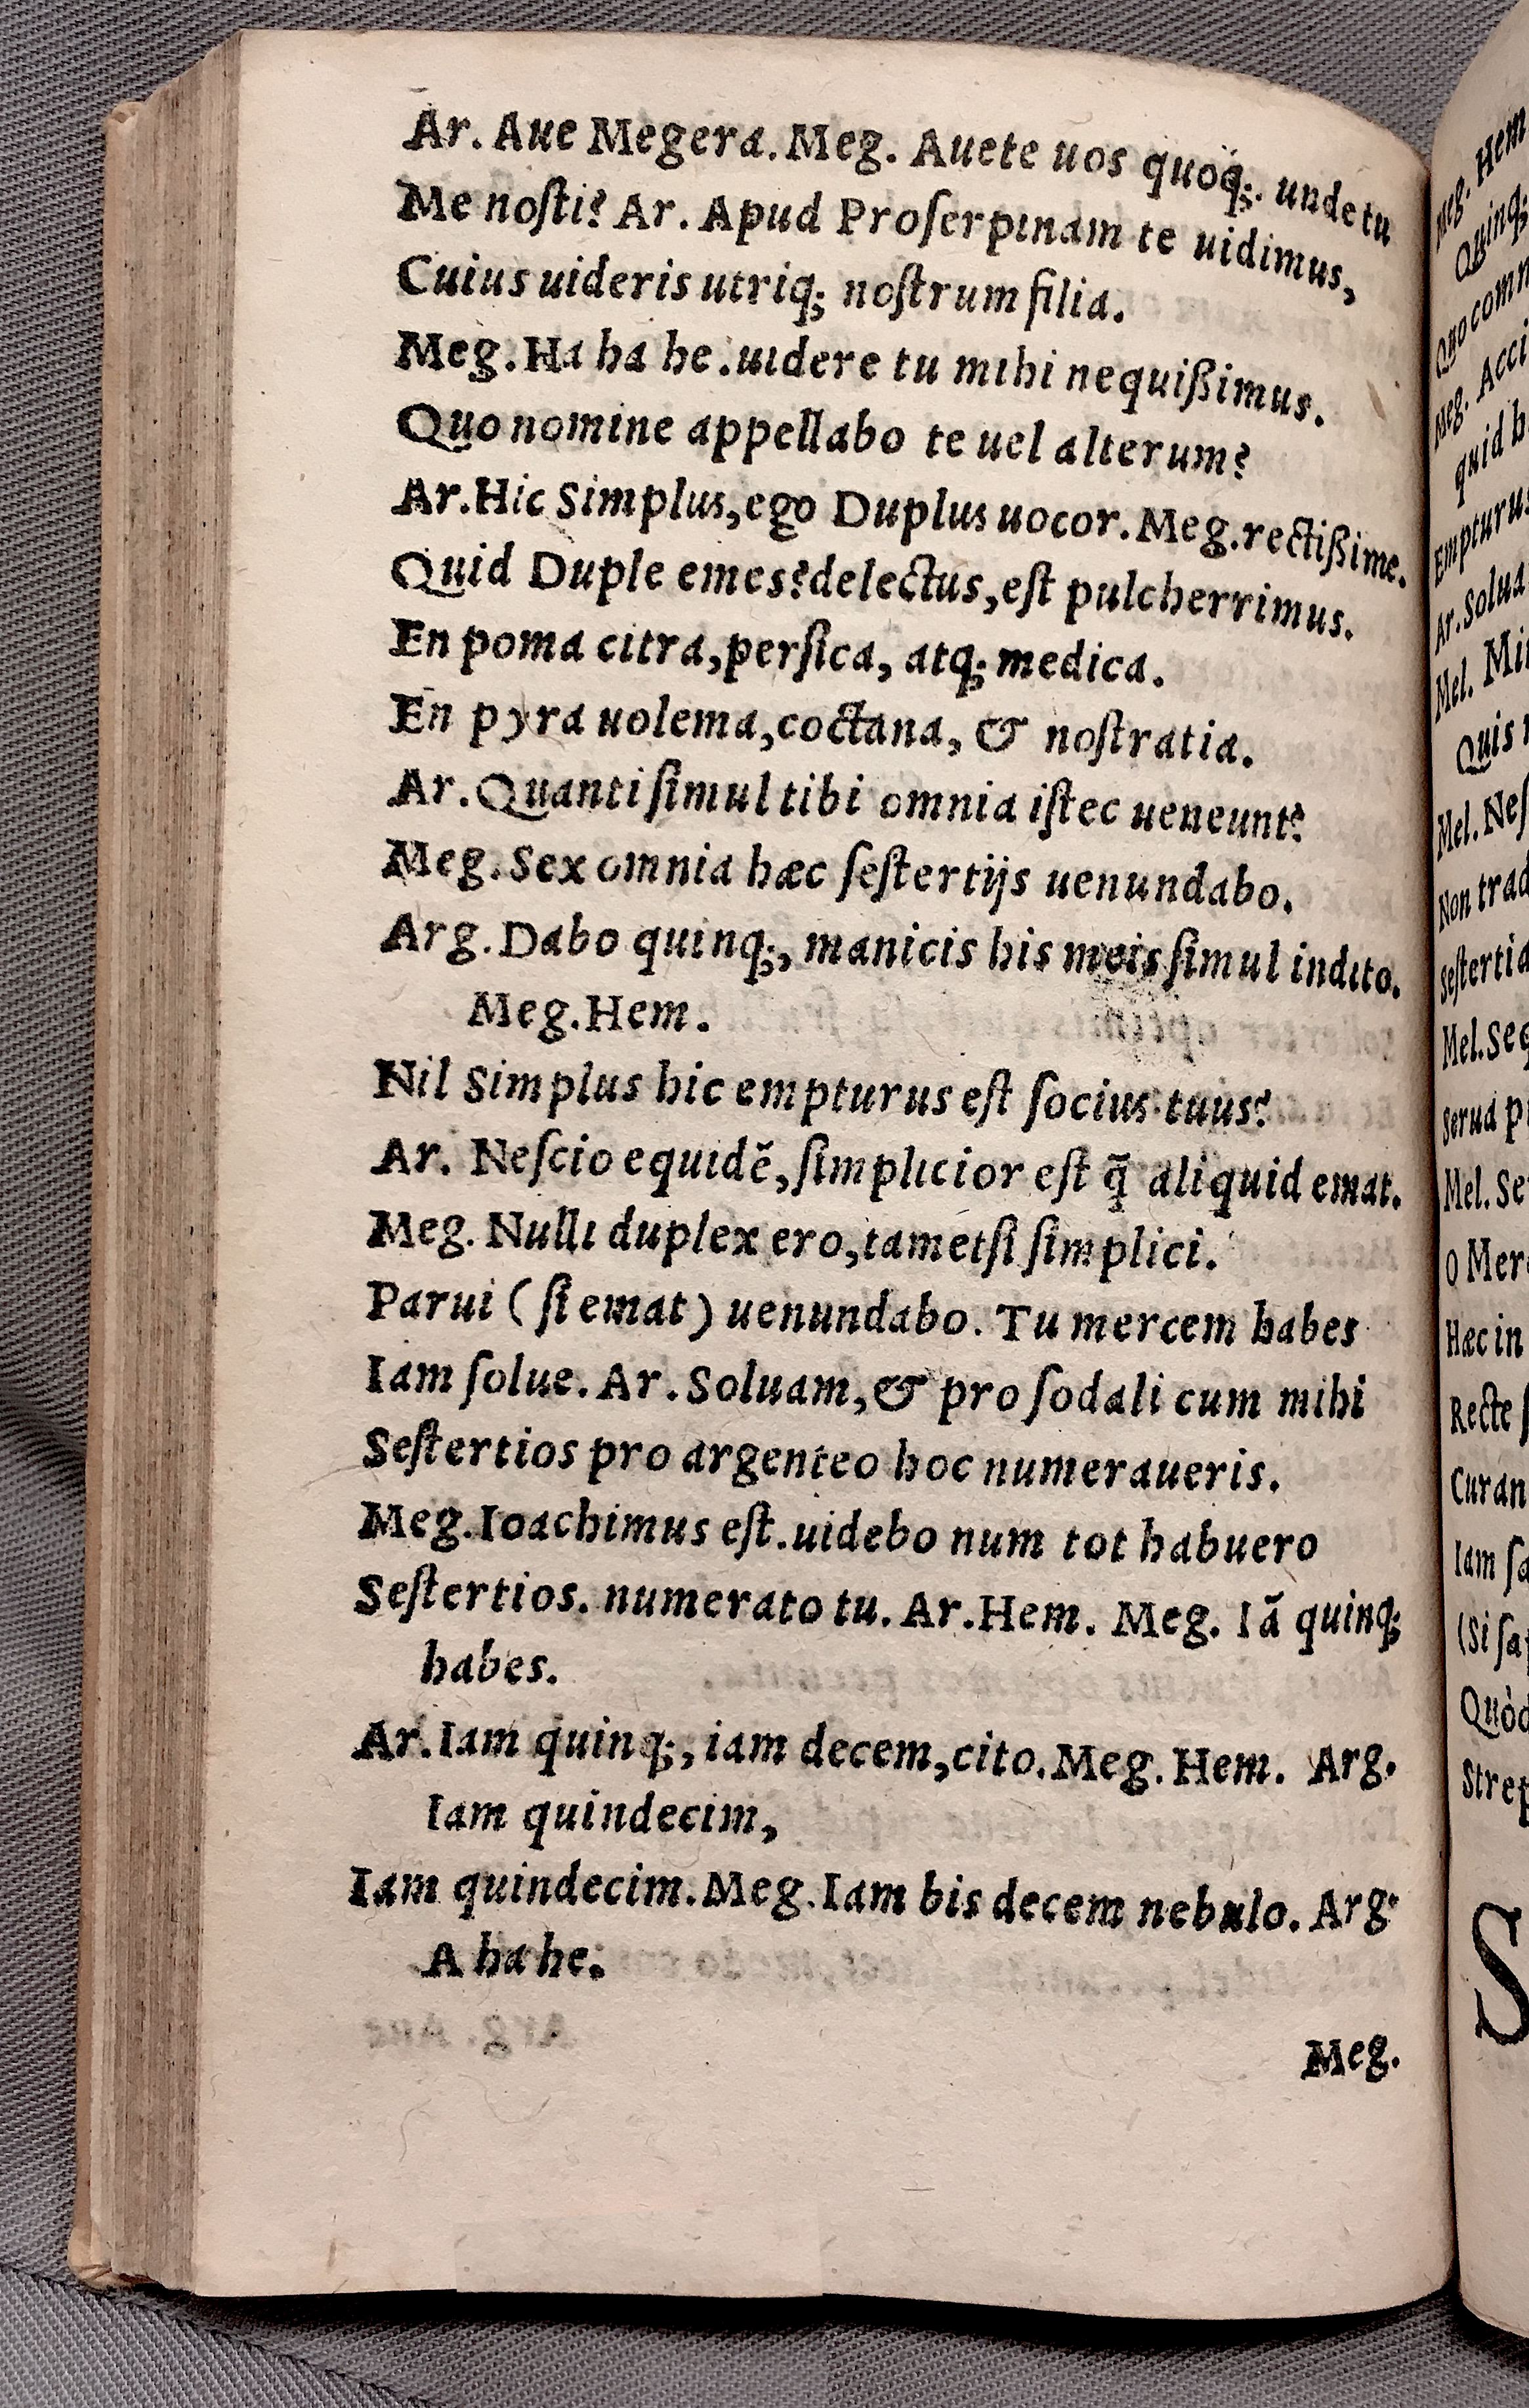 Ar. Aue Megera. Meg. Auete uos quoq;. unde tu
Me noſti? Ar. Apud Proſerpinam te uidimus,
Cuius uideris utriq; noſtrum filia.
Meg. Ha ha he. uidere tu mihi nequißimus.
Quo nomine appellabo te uel alterum?
Ar. Hic Simplus, ego Duplus uocor. Meg. rectißime.
Quid Duple emes? delectus, eſt pulcherrimus.
En poma citra, perſica, atq; medica.
En pyra uolema, coctana, & noſtratia.
Ar. Quanti ſimul tibi omnia iſtec ueneunt?
Meg. Sex omnia hæc ſeſtertijs uenundabo.
Arg. Dabo quinq;, manicis his meis ſimul indito.
Meg. Hem.
Nil Simplus hic empturus eſt ſocius tuus?
Ar. Neſcio equidē, ſimplicior eſt q̄ aliquid emat.
Meg. Nulli duplex ero, tametſi ſimplici.
Parui (ſi emat) uenundabo. Tu mercem habes
Iam ſolue. Ar. Soluam, & pro ſodali cum mihi
Seſtertios pro argenteo hoc numeraueris.
Meg. Ioachimus eſt. uidebo num tot habuero
Seſtertios. numerato tu. Ar. Hem. Meg. Iā quinq;
habes.
Ar. Iam quinq;, iam decem, cito. Meg. Hem. Arg.
Iam quindecim,
Iam quindecim. Meg. Iam bis decem nebulo. Arg.
A ha he.
Meg.
Meg. Hem
Quinq;
Meg. Acci
quid
Ar. Solua
Mel.
Quis
Mel. Neſ
Non trad
Seſtertia
Mel.
Serua
Mel. Se
O Mer
Hæc in
Recte
Curan
Iam ſa
(Si ſa
Strep
S